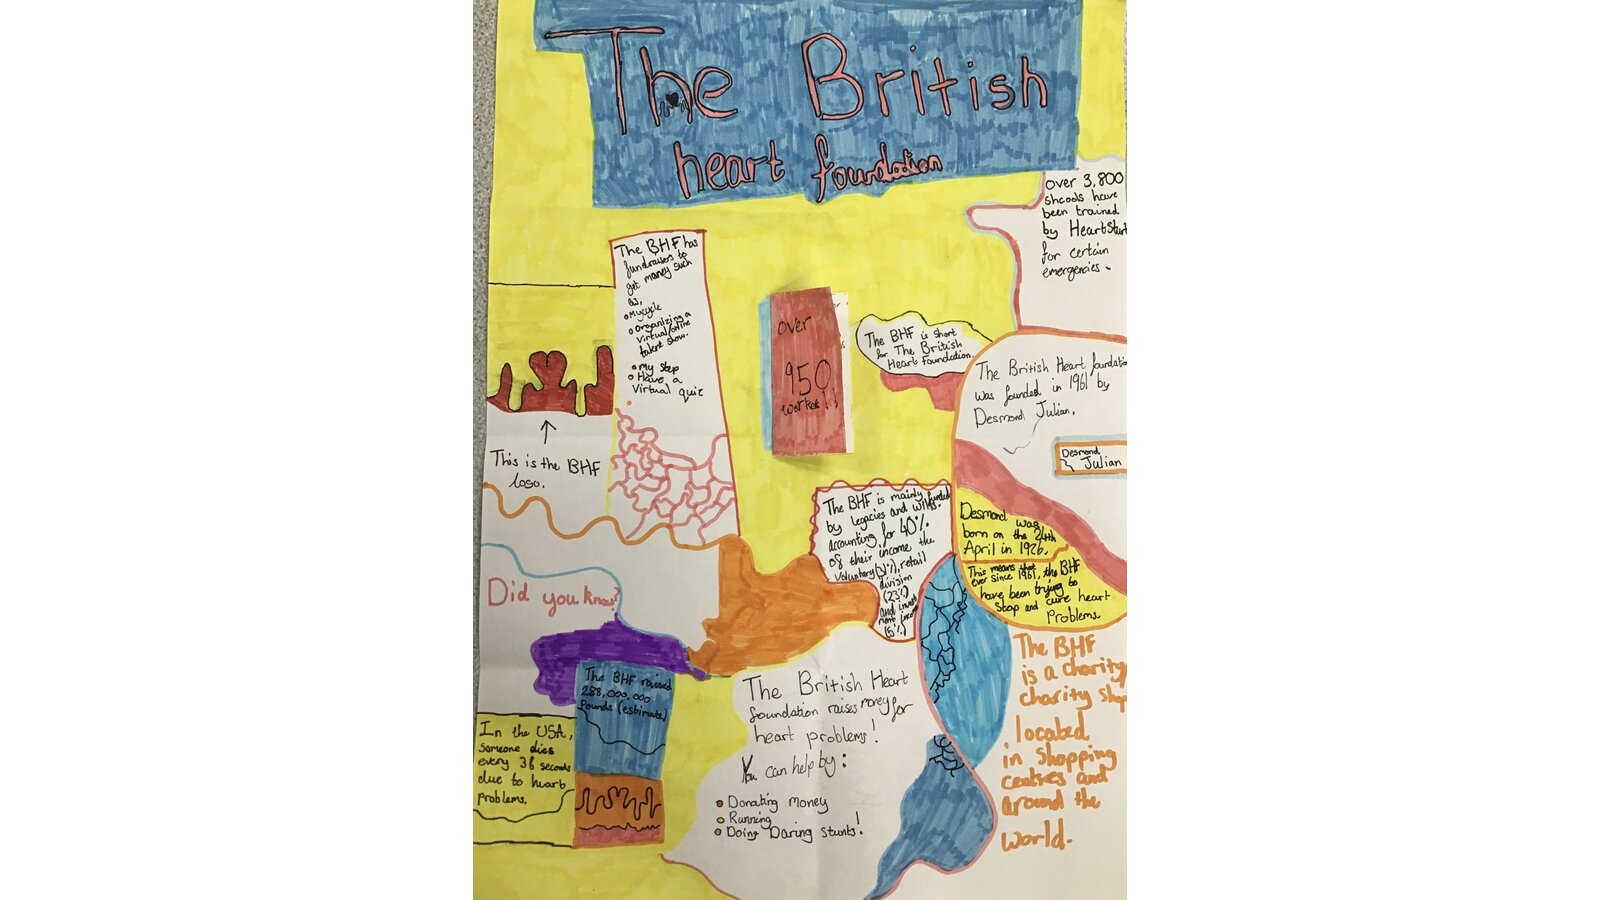 The British
heart foundation
Over 3,800
shcools have
been trained
by HeartStart
for certain
emergencies.
The BHF has
fundraisers to
get money such
as,
Mycycle
Organizing a
virtual/online
talent show.
My step
Have a
virtual quiz
over
950
workers!!
The BHF is short
for The British
Heart Foundation.
The British Heart foundation
was founded in 1961 by
Desmond Julian.
Desmond
Julian
This is the BHF
logo.
The BHF is mainly funded
by legacies and wills.
accounting for 40%
of their income the
voluntary(31%), retail
division
(23%)
and invest
ment income
(6%)
Desmond was
born on the 24th
April in 1926.
This means that
ever since 1961, the BHF
have been trying to
stop and cure heart
problems.
Did you know?
The BHF raised
288,000,000
Pounds (estimate)
In the USA,
someone dies
every 36 seconds
due to heart
problems.
The British Heart
foundation raises money for
heart problems!
You can help by:
Donating money
Running
Doing Daring stunts!
The BHF
is a charity
charity shop
located
in shopping
centres and
around the
world.